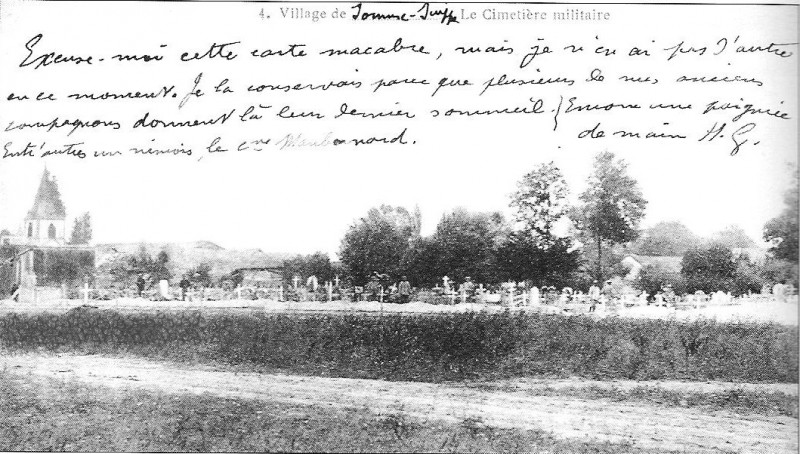 4. Village de Somme-Suippe Le Cimetière militaire
Excuse-moi cette carte macabre, mais je n'en ai pas d'autre
en ce moment. Je la conservais parce que plusieurs de mes anciens
compagnons dorment là leur dernier sommeil. } Encore une poignée
Entr'autres un rémois, le cne de main H. G.